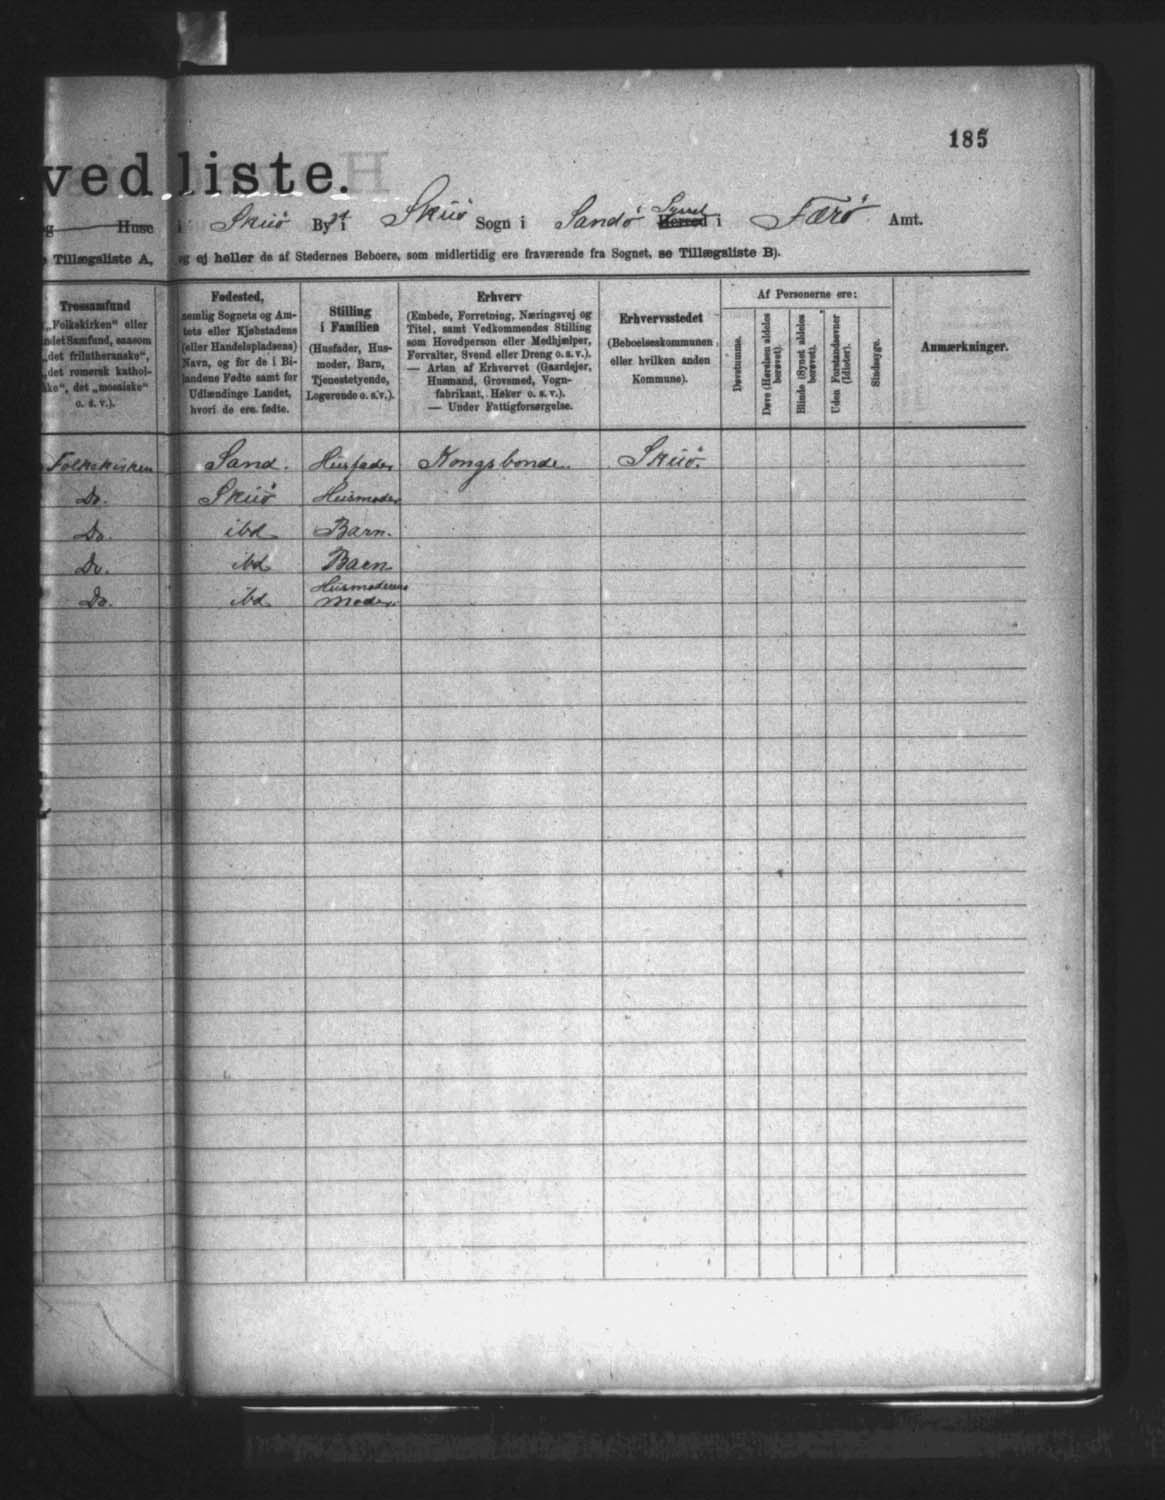 185
ved liste.
g Huse i Skuö By i Skuö Sogn i Sandö Syssel Herred i Færö Amt.
Tillægsliste A, og ej heller de af Stedernes Beboere, som midlertidig ere fraværende fra Sognet, se Tillægsliste B).
Trossamfund
(„Folkekirken“ eller
andet Samfund, saasom
„det frilutheranske“,
„det romersk kathol-
ske“, det „mosaiske“
o. s. v.).
Fødested,
nemlig Sognets og Am-
tets eller Kjøbstadens
(eller Handelspladsens)
Navn, og for de i Bi-
landene Fødte samt for
Udlændinge Landet,
hvori de ere fødte.
Stilling
i Familien
(Husfader, Hus-
moder, Barn,
Tjenestetyende,
Logerende o. s. v.).
Erhverv
(Embede, Forretning, Næringsvej og
Titel, samt Vedkommendes Stilling
som Hovedperson eller Medhjælper,
Forvalter, Svend eller Dreng o. s. v.).
— Arten af Erhvervet (Gaardejer,
Husmand, Grovsmed, Vogn-
fabrikant, Høker o. s. v.).
— Under Fattigforsørgelse.
Erhvervsstedet
(Beboelseskommunen
eller hvilken anden
Kommune).
Af Personerne ere:
Døvstumme.
Døve (Hørelsen aldeles
berøvet).
Blinde (Synet aldeles
berøvet).
Uden Forstandsevner
(Idioter).
Sindssyge.
Anmærkninger.
Folkekirken Sand. Husfader Kongsbonde. Skuö.
Do. Skuö Husmoder
Do. ibd. Barn.
Do. ibd Barn
Do. ibd Husmoderens
Moder.